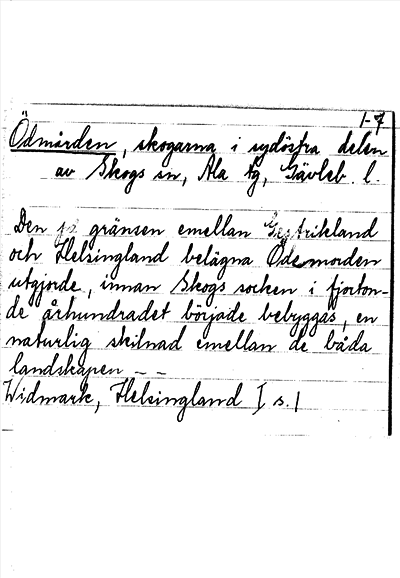 1-7
Ödmården, skogarna i sydöstra delen
av Skogs sn, Ala tg, Gävleb. l.
Den på gränsen emellan Gestrikland
och Helsingland belägna Ödemorden
utgjorde, innan Skogs socken i fjorton-
de århundradet började bebyggas, en
naturlig skilnad emellan de båda
landskapen - -
Widmark, Helsingland I s. 1